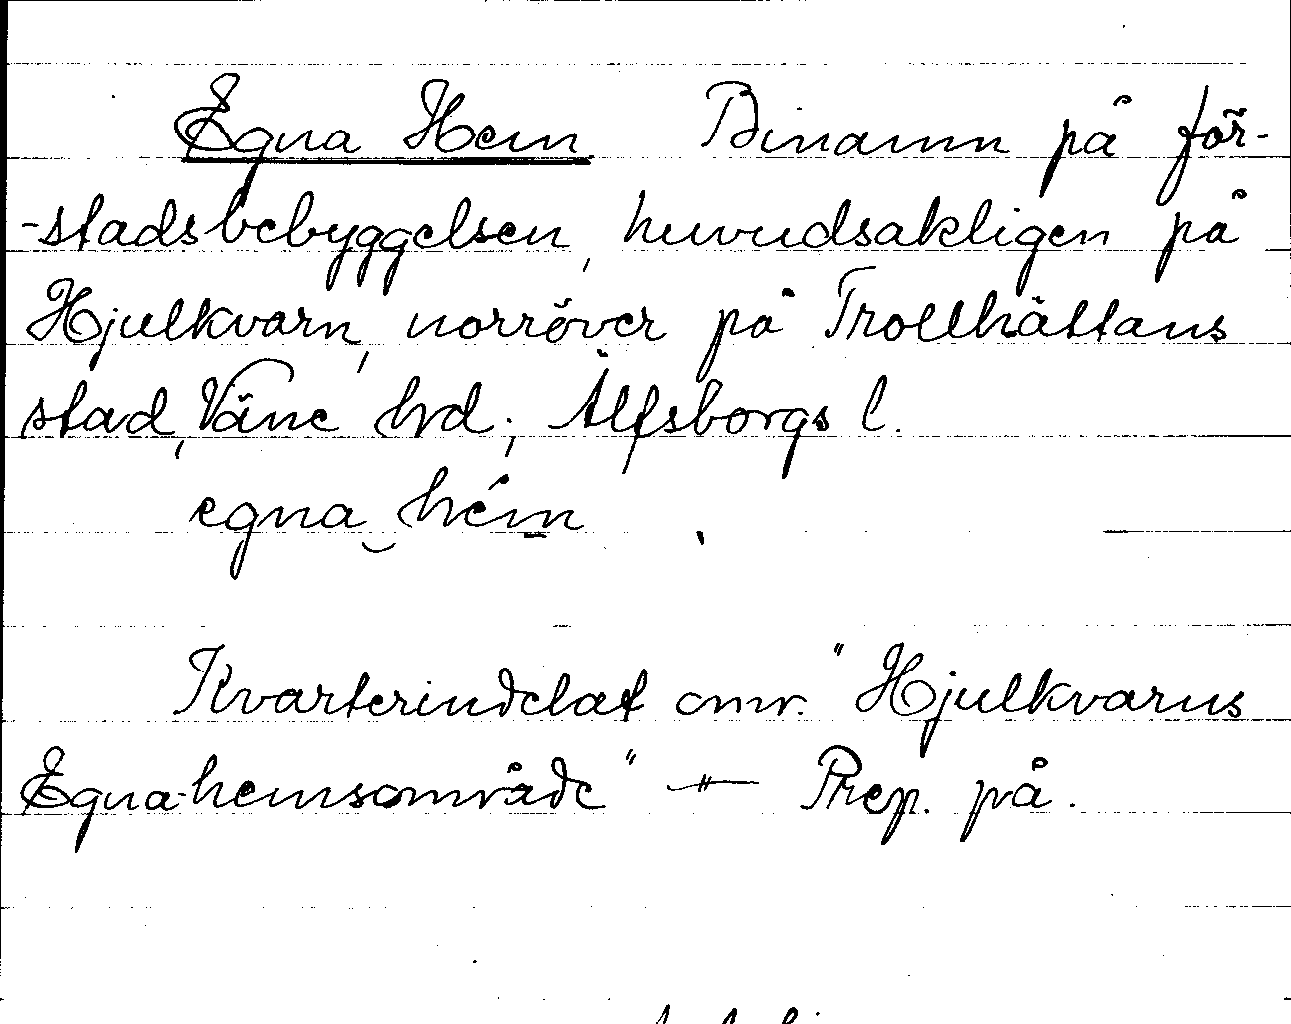 Egna Hem Binamn på för-
-stadsbebyggelsen, huvudsakligen på
Hjulkvarn, norröver på Trollhättans
stad, Väne hd; Älfsborgs l.
egna hém
Kvarterindelat omr. "Hjulkvarns
Egna-hemsområde" — Prep. på.